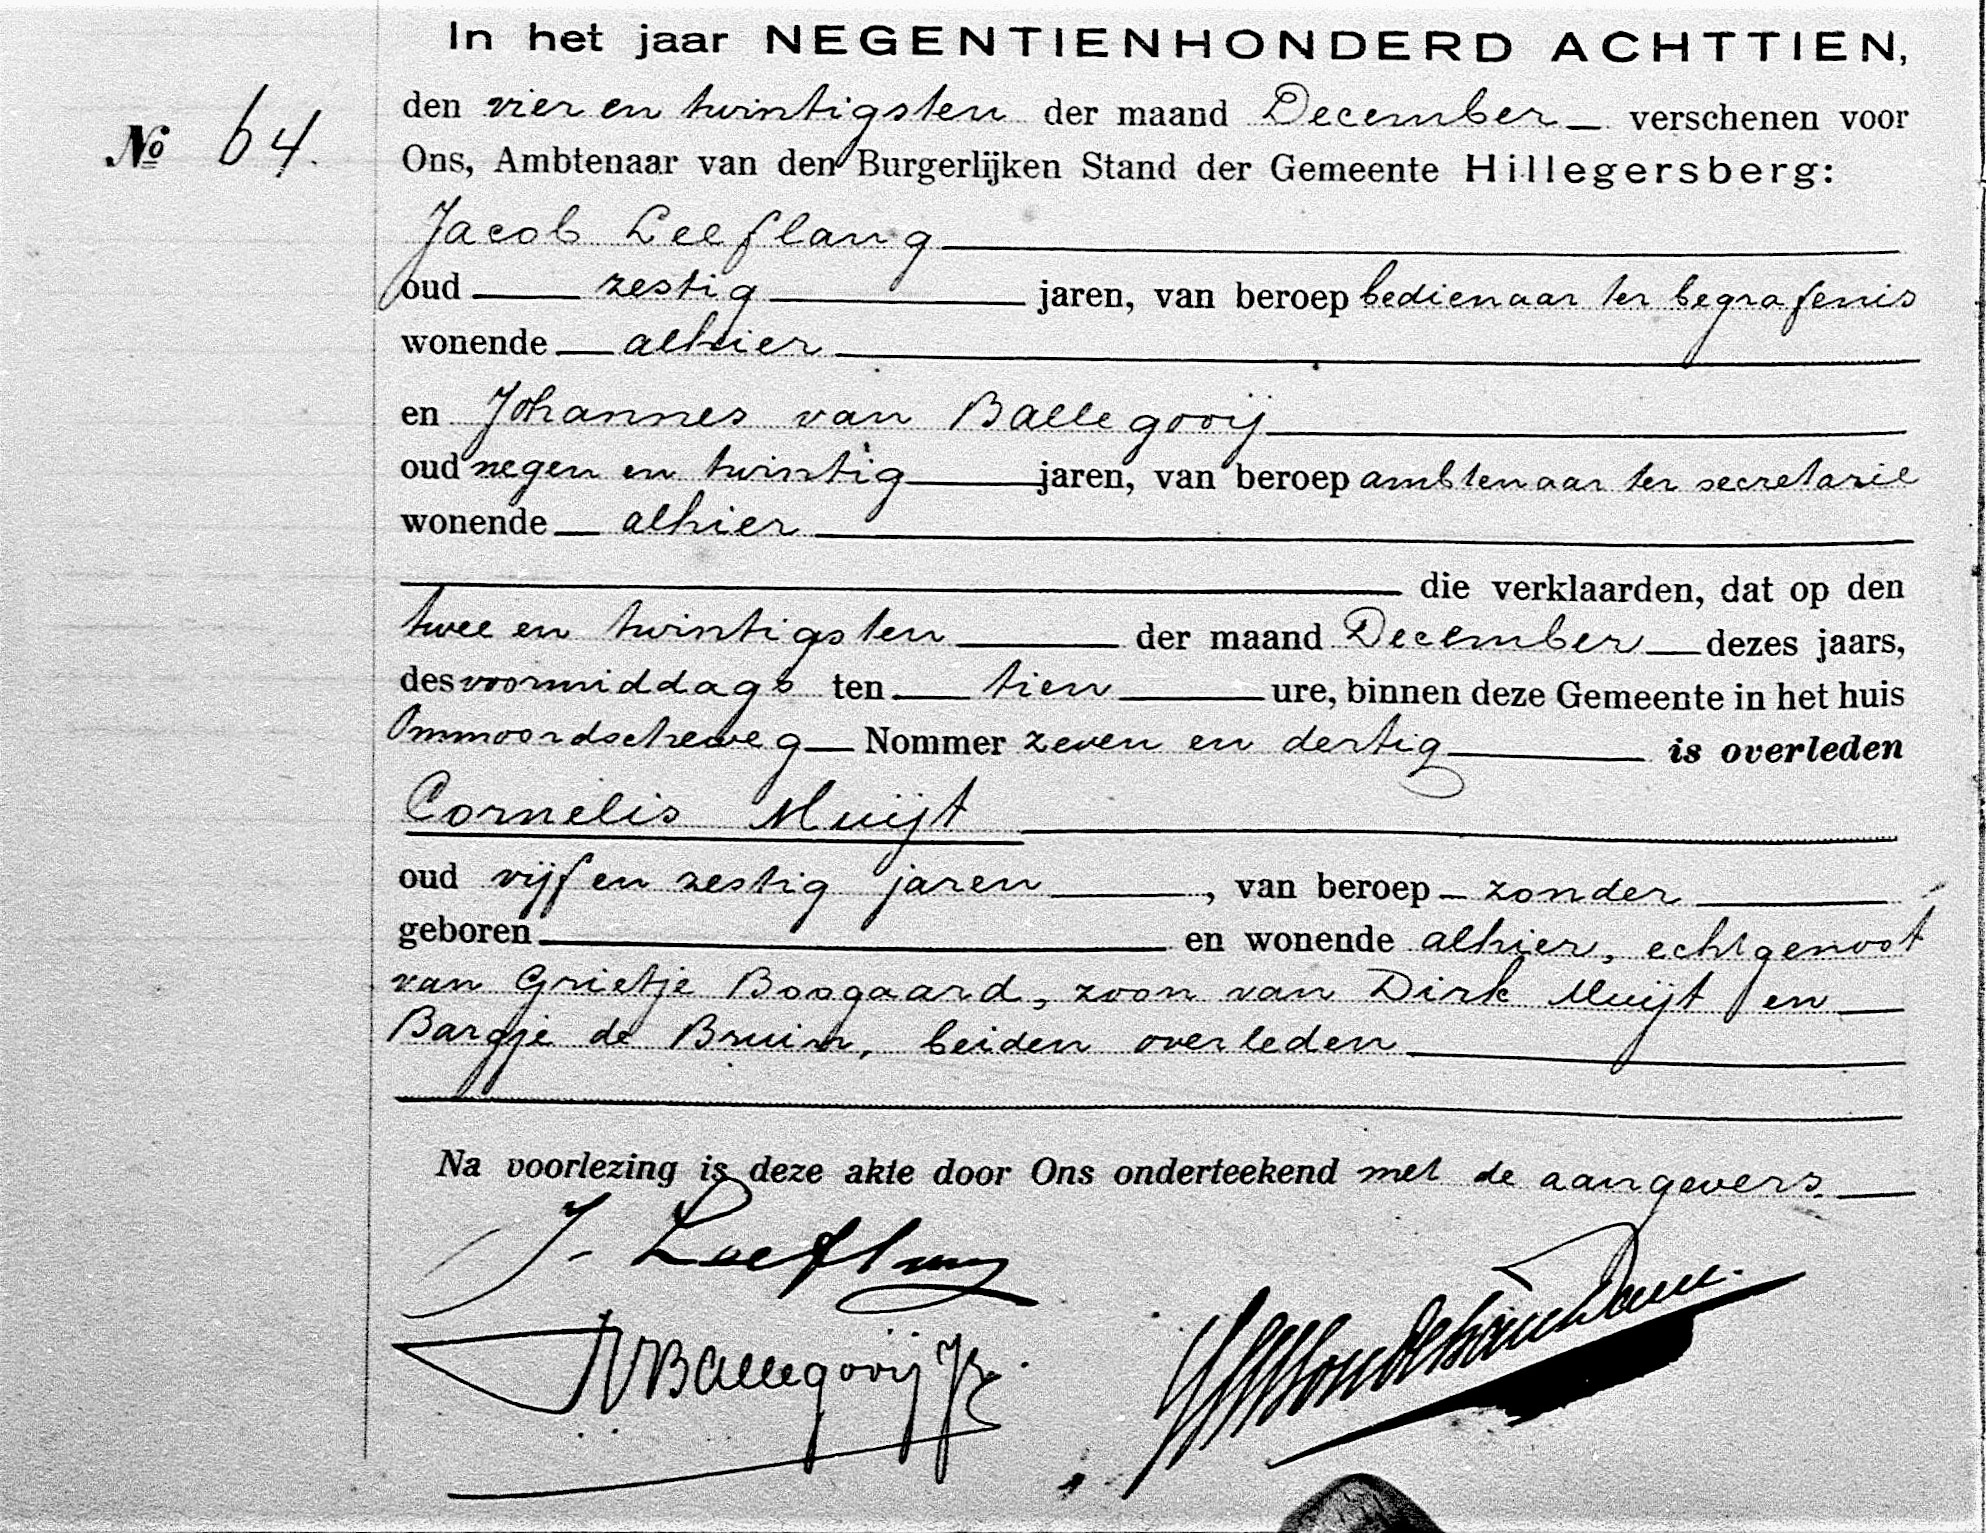 In het jaar NEGENTIENHONDERD ACHTTIEN,
den vier en twintigsten der maand December verschenen voor
No 64.
Ons, Ambtenaar van den Burgerlijken Stand der Gemeente Hillegersberg:
Jacob Leeflang
oud zestig jaren, van beroep bedienaar ter begrafenis
wonende alhier
en Johannes van Ballegooij
oud negen en twintig jaren, van beroep ambtenaar ter secretarie
wonende alhier
die verklaarden, dat op den
twee en twintigsten der maand December dezes jaars,
des voormiddags ten tien ure, binnen deze Gemeente in het huis
Ommoordscheweg Nommer zeven en dertig is overleden
Cornelis Muijt
oud vijf en zestig jaren, van beroep zonder
geboren en wonende alhier, echtgenoot
van Grietje Boogaard, zoon van Dirk Muijt en
Bargje de Bruin, beiden overleden
Na voorlezing is deze akte door Ons onderteekend met de aangevers.
J. Leeflang
JVBallegooij Jr.